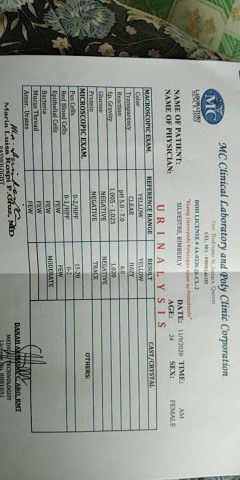 MC
LABORATORY
SINCE 2000
MC Clinical Laboratory and Poly Clinic Corporation
DOH LICENSE #
URINALYSIS
NAME OF PATIENT: SILVESTRE, KIMBERLY DATE: 11/9/2020 TIME: AM
NAME OF PHYSICIAN: AGE: 24 SEX: FEMALE
MACROSCOPIC EXAM. REFERENCE RANGE RESULT CAST/CRYSTAL
Color YELLOW YELLOW
Transparency CLEAR HAZY
Reaction pH 5.0 - 7.0 6.0
Sp. Gravity 1.005 - 1.025 1.020
Glucose NEGATIVE NEGATIVE
Protein NEGATIVE TRACE
MICROSCOPIC EXAM. OTHERS:
Pus Cells 0-2/HPF 15-20
Red Blood Cells 0-1/HPF 0-2
Epithelial Cells FEW MODERATE
Bacteria FEW FEW
Mucus Thread FEW
Amor. Urates FEW
Maria Luisa
MD
RMT
MEDICAL TECHNOLOGIST